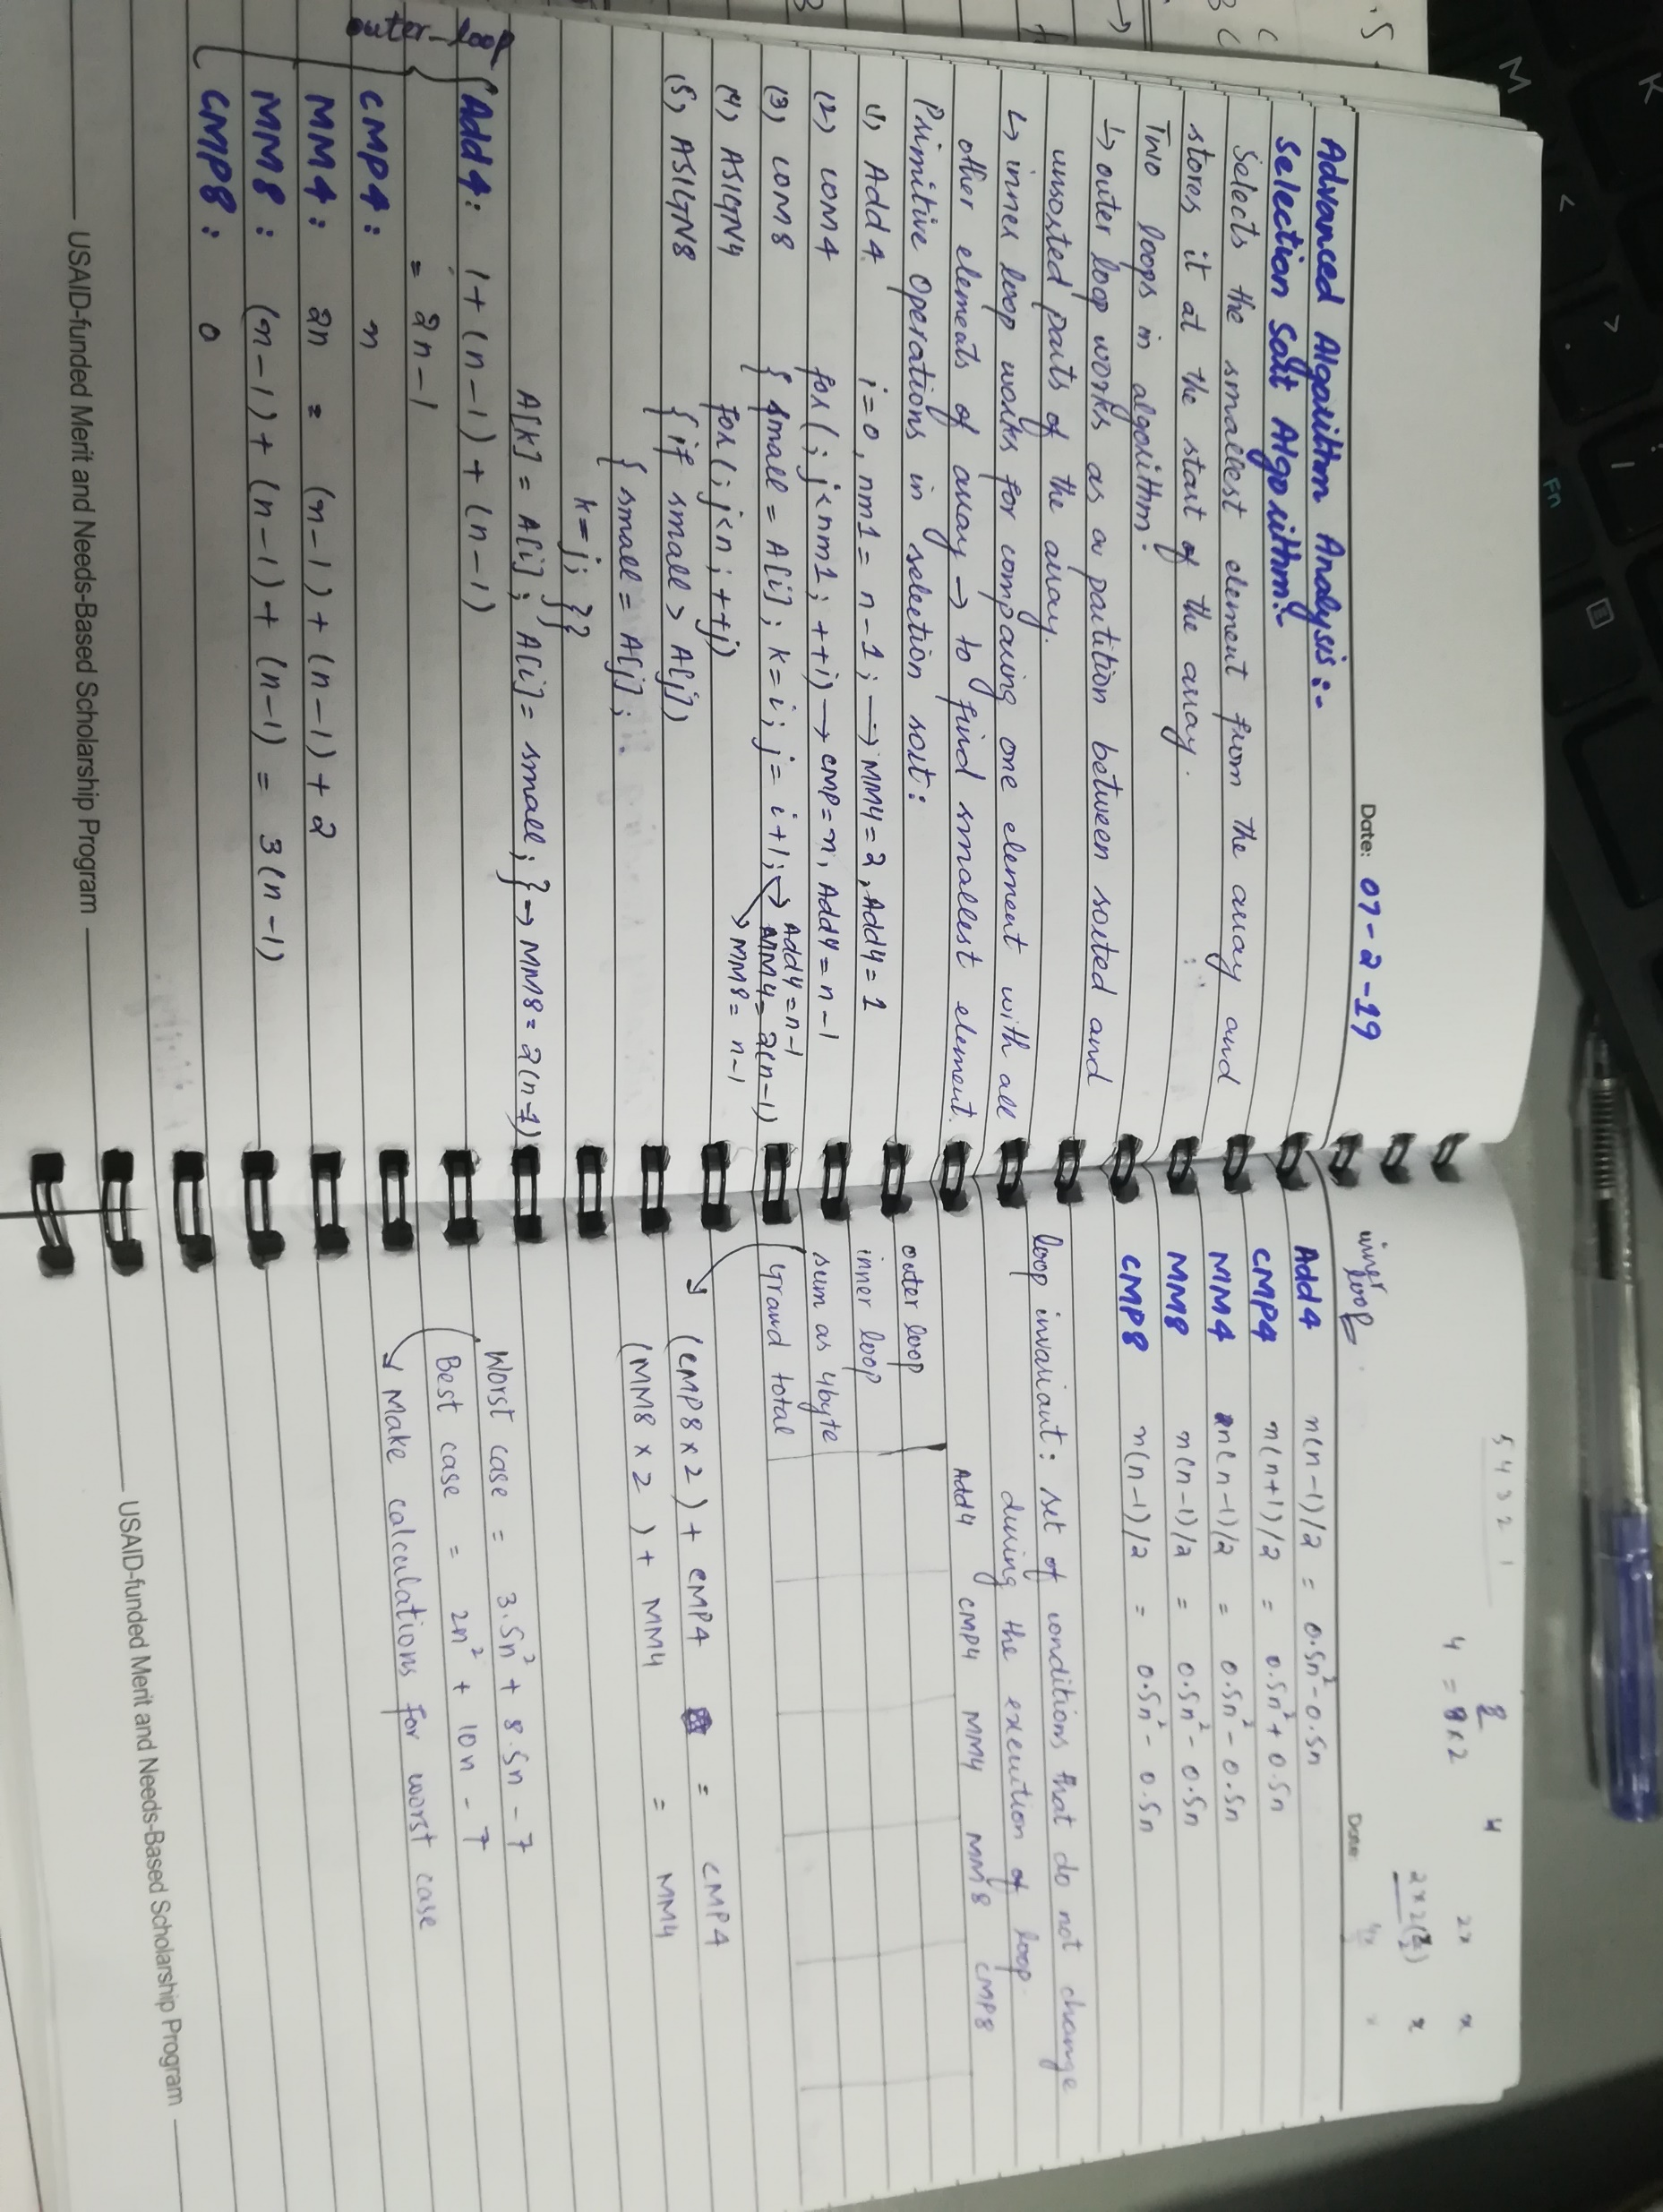 Date: 07-2-19
Advanced Algorithm Analysis:-
Selection Sort Algorithm:
Selects the smallest element from the array and
stores it at the start of the array.
Two loops in algorithm:
↳ outer loop works as a partition between sorted and
unsorted parts of the array.
↳ inner loop works for comparing one element with all
other elements of array → to find smallest element.
Primitive Operations in selection sort:
(1) Add4 i=0, nm1 = n-1; → MM4=2, Add4=1
(2) COM4 for(; i<nm1; ++i) → CMP=n, Add4=n-1
(3) COM8 { small = A[i]; k=i; j=i+1; → Add4=n-1
MM4=2(n-1)
→ MM8= n-1
(4) ASIGN4 for(; j<n; ++j)
(5) ASIGN8 { if small > A[j])
{ small = A[j];
k=j; }}
A[k] = A[i]; A[i]= small; } → MM8=2(n-1)
outer-loop
Add4: 1+(n-1)+(n-1)
= 2n-1
CMP4: n
MM4: 2n = (n-1)+(n-1)+2
MM8: (n-1)+(n-1)+(n-1) = 3(n-1)
CMP8: 0
USAID-funded Merit and Needs-Based Scholarship Program
5 4 3 2 1
Date:
inner loop
Add4 n(n-1)/2 = 0.5n²-0.5n
CMP4 n(n+1)/2 = 0.5n²+0.5n
MM4 n(n-1)/2 = 0.5n²-0.5n
MM8 n(n-1)/2 = 0.5n²-0.5n
CMP8 n(n-1)/2 = 0.5n²-0.5n
loop invariant: set of conditions that do not change
during the execution of loop.
Add4 CMP4 MM4 MM8 CMP8
outer loop
inner loop
sum as 4byte
Grand total
(CMP8 x 2) + CMP4 = CMP4
(MM8 x 2) + MM4 = MM4
Worst case = 3.5n² + 8.5n - 7
Best case = 2n² + 10n - 7
Make calculations for worst case
USAID-funded Merit and Needs-Based Scholarship Program